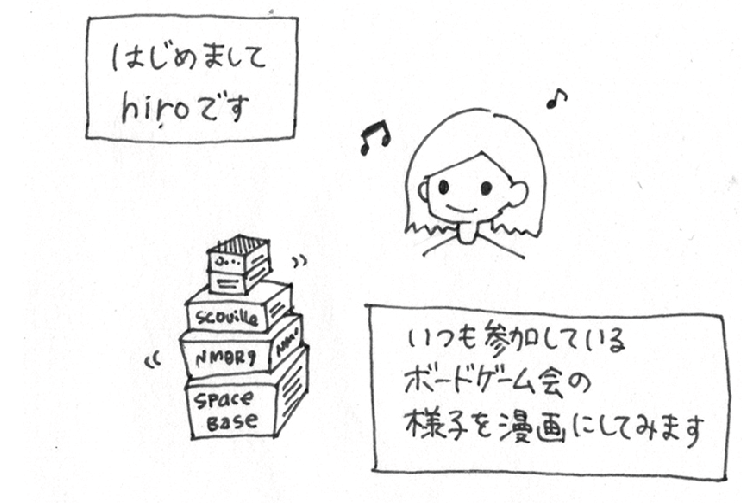 はじめまして
hiroです
scoville
NMBR9
space
Base
いつも参加している
ボードゲーム会の
様子を漫画にしてみます